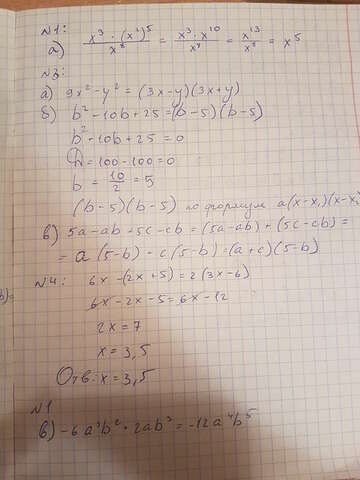 N1:
а) x³ · (x²)⁵ / x⁸ = x³ · x¹⁰ / x⁸ = x¹³ / x⁸ = x⁵
N3:
а) 9x² - y² = (3x-y)(3x+y)
б) b² - 10b + 25 = (b-5)(b-5)
b² - 10b + 25 = 0
D = 100 - 100 = 0
b = 10/2 = 5
(b-5)(b-5) по формуле a(x-x₁)(x-x₂
в) 5a - ab + 5c - cb = (5a-ab) + (5c-cb) =
= a(5-b) - c(5-b) = (a+c)(5-b)
N4: 6x - (2x+5) = 2(3x-6)
6x - 2x - 5 = 6x - 12
2x = 7
x = 3,5
Отв: x = 3,5
N1
в) -6a³b² · 2ab³ = -12a⁴b⁵